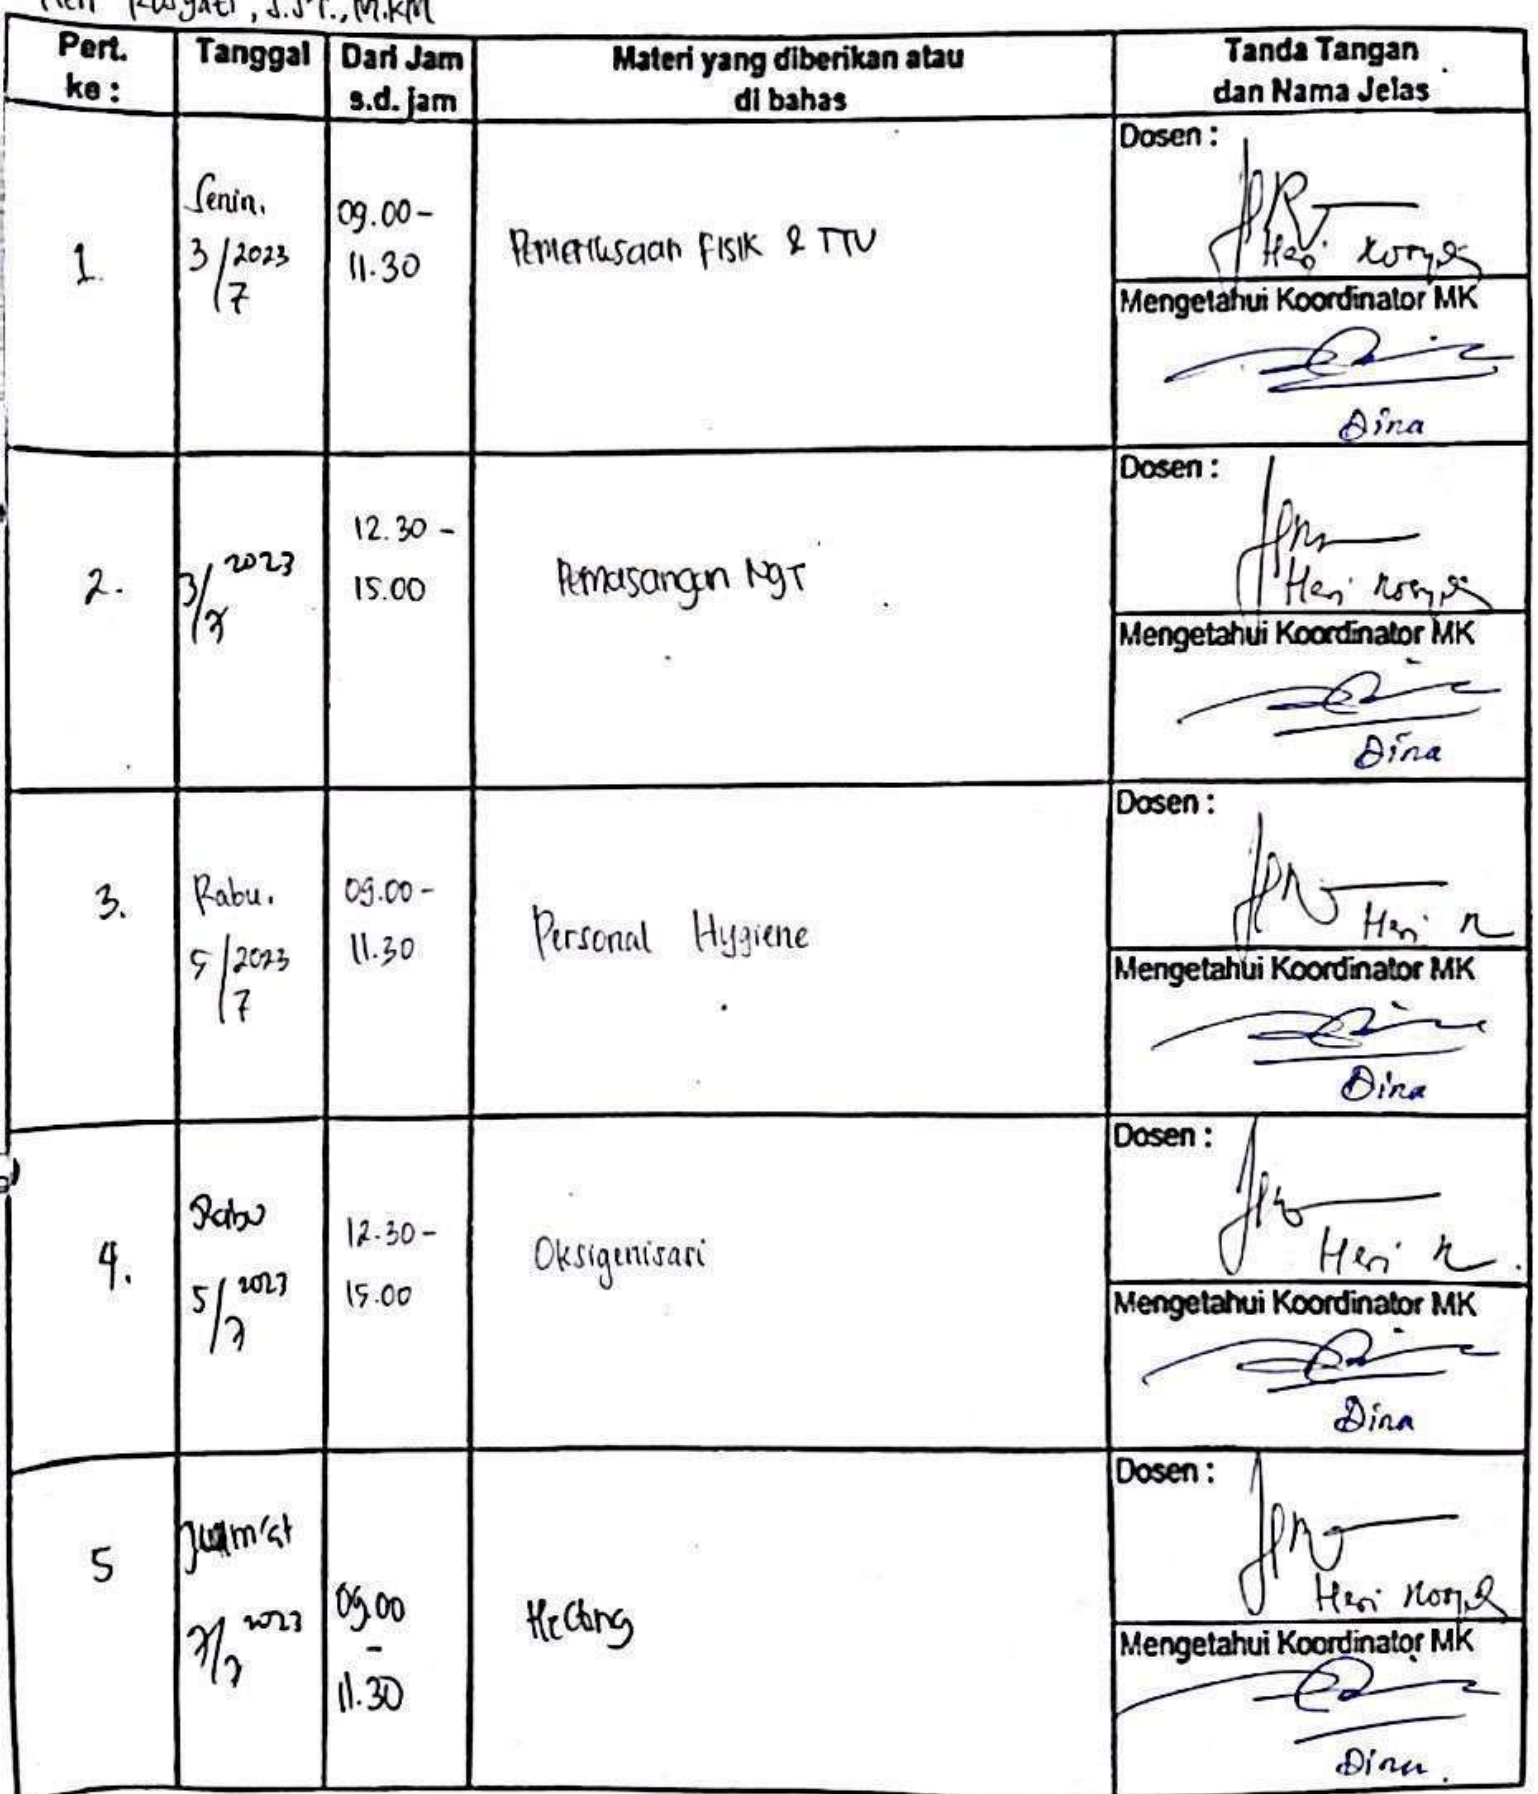 Heri Rosyati, S.ST., M.KM
Pert. ke : Tanggal Dari Jam s.d. jam Materi yang diberikan atau di bahas Tanda Tangan dan Nama Jelas
1. Senin. 3/7 2023 09.00 - 11.30 Pemeriksaan Fisik & TTV
Dosen :
Heri Rosyati
Mengetahui Koordinator MK
Dina
2. 3/7 2023 12.30 - 15.00 Pemasangan NGT
Dosen :
Heri Rosyati
Mengetahui Koordinator MK
Dina
3. Rabu. 5/7 2023 09.00 - 11.30 Personal Hygiene
Dosen :
Heri R
Mengetahui Koordinator MK
Dina
4. Rabu 5/7 2023 12.30 - 15.00 Oksigenisasi
Dosen :
Heri R.
Mengetahui Koordinator MK
Dina
5 Jum'at 7/7 2023 09.00 - 11.30 Hecting
Dosen :
Heri Rosyati
Mengetahui Koordinator MK
Dina.